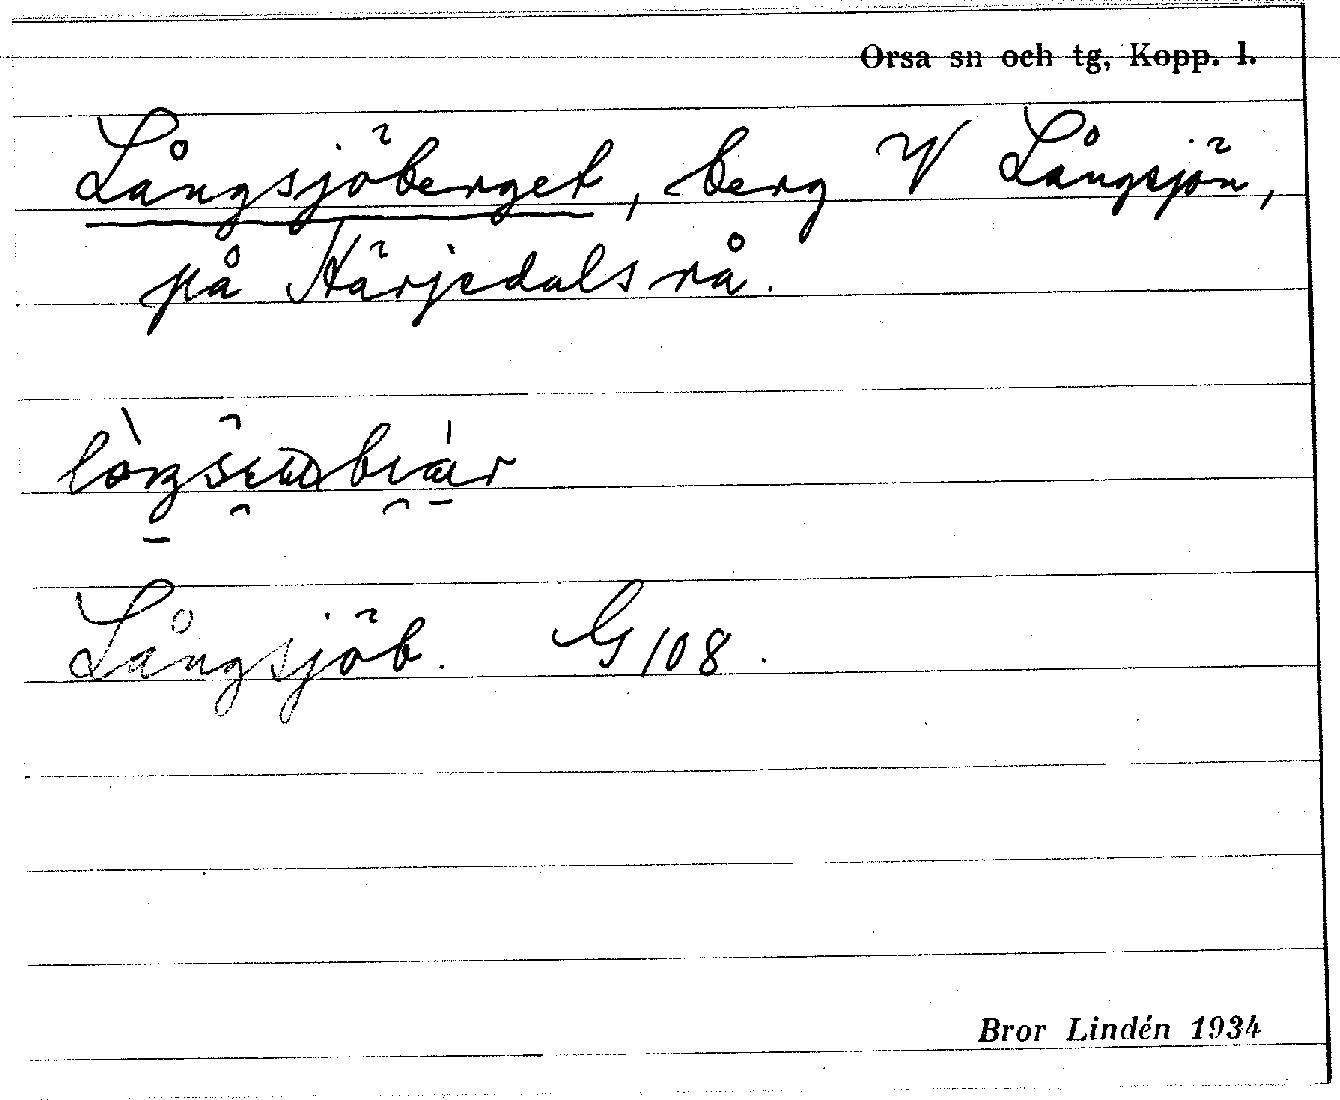 Orsa sn och tg, Kopp. l.
Långsjöberget, berg V Långsjön,
på Härjedalsrå.
Långsjöb. G 108.
Bror Lindén 1934